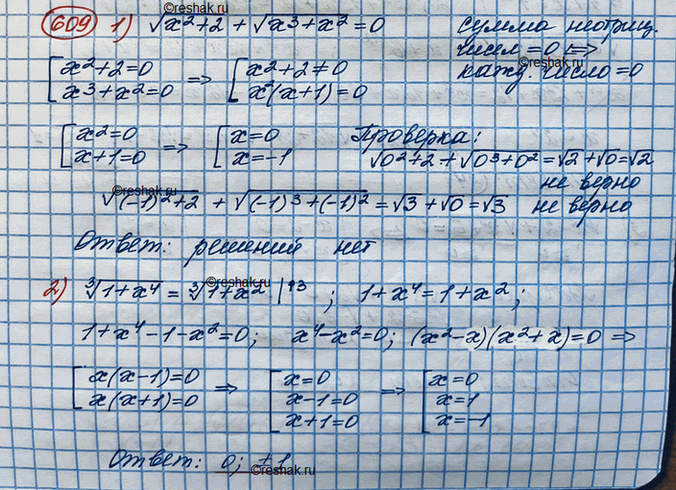 ©reshak.ru
609 1) √x²+2 + √x³+x² = 0 сумма неотриц.
чисел =0 ⇔
©reshak.ru
кажд. число =0
[x²+2=0 ⇒ [x²+2≠0
x³+x²=0 x²(x+1)=0
[x²=0 ⇒ [x=0 Проверка:
x+1=0 x=-1 √0²+2 + √0³+0² = √2 + √0 = √2
не верно
©reshak.ru
√(-1)²+2 + √(-1)³+(-1)² = √3 + √0 = √3 не верно
Ответ: решений нет
©reshak.ru
2) ³√1+x⁴ = ³√1+x² |↑3 ; 1+x⁴=1+x² ;
1+x⁴-1-x²=0; x⁴-x²=0; (x²-x)(x²+x)=0 ⇒
[x(x-1)=0 ⇒ [x=0 ⇒ [x=0
x(x+1)=0 x-1=0 x=1
x+1=0 x=-1
Ответ: 0; ±1
©reshak.ru